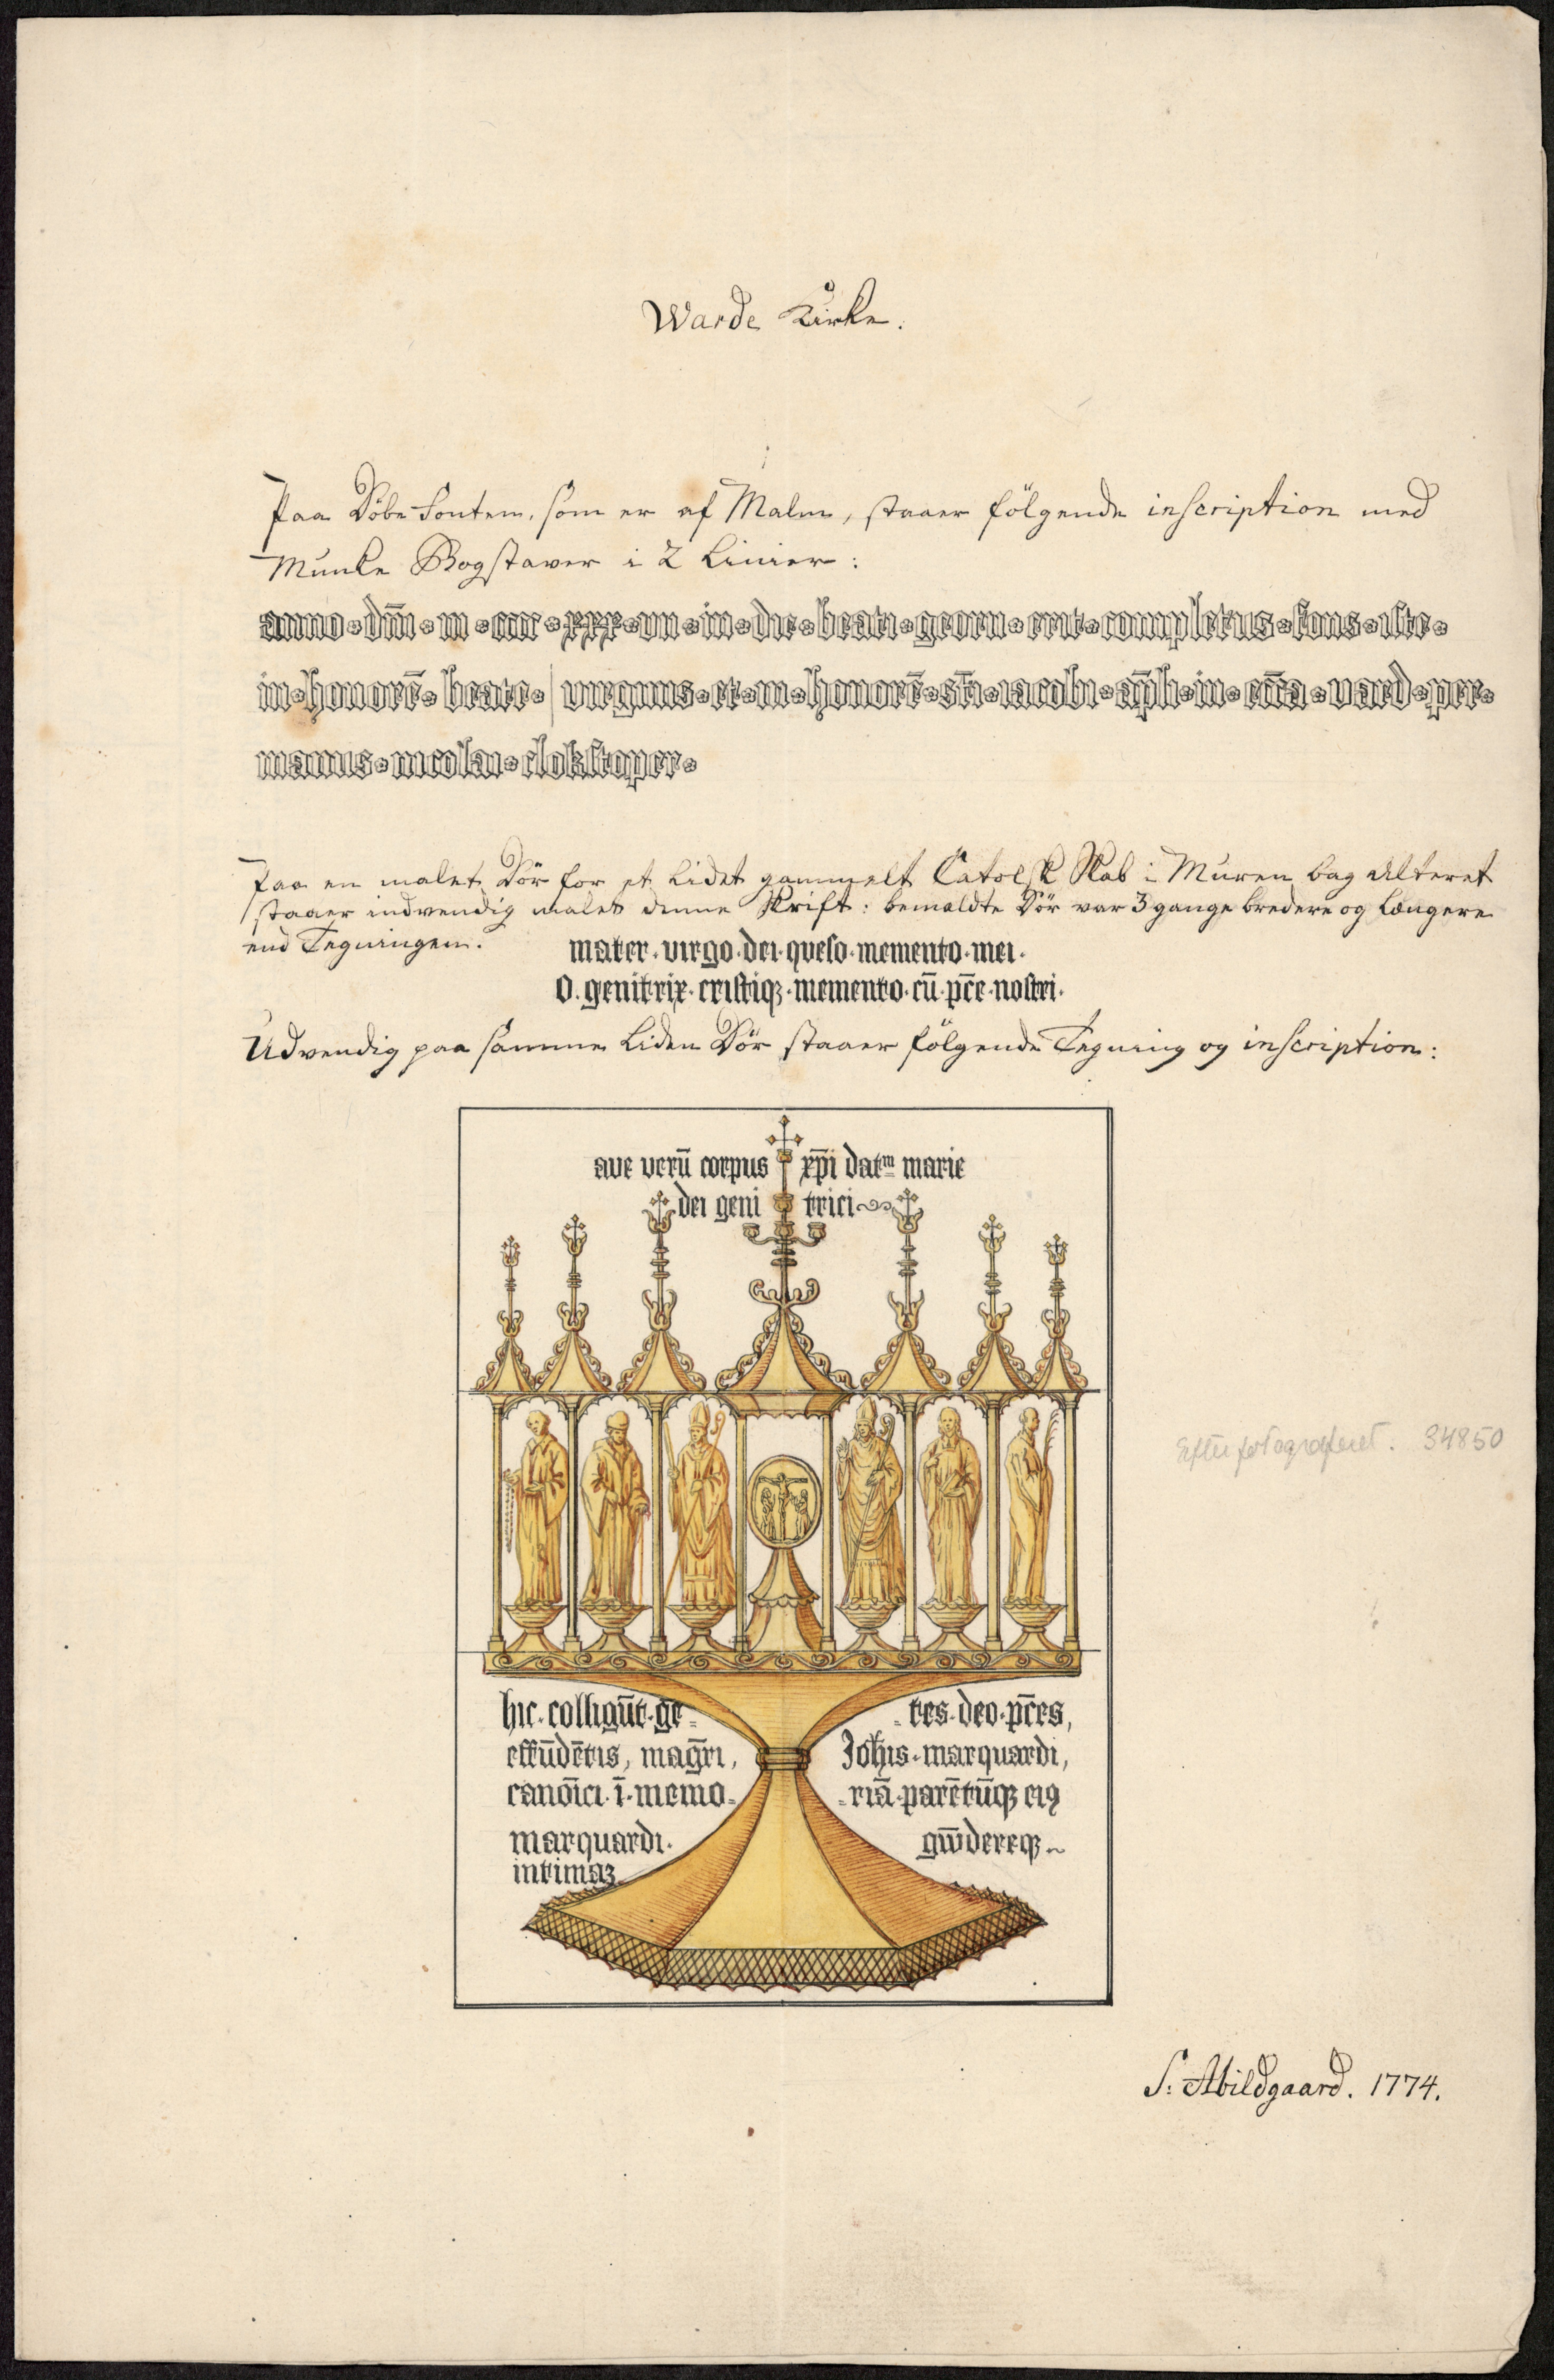 Warde Kirke.
Paa Döbe Fonten, som er af Malm, staaer fölgende inscription med
Munke Bogstaver i 2 Linier:
anno dm̄i m cccc xxx vii in die beati georii erit completus fons iste
in honorē beate virginis et in honorē sti iacobi apli in ccīa vard per
manus nicolai clokstoper
Paa en malet Dör for et lidet gammelt Catolsk Skab i Muren bag Alteret
staaer indvendig malet denne Skrift: bemældte Dör var 3 gange bredere og Længere
end Tegningen.
mater. virgo. dei. queso. memento. mei.
O. genitrix. cristiqꝫ. memento. cū. pc̄e. nostri.
Udvendig paa samme liden Dör staaer fölgende Tegning og inscription:
ave verū corpus xp̄i datm marie
dei geni trici
hic. colligūt. gē- -tes. deo. pc̄es,
effūdētis, magr̄i, Joh̄is. marquardi,
canoīci. ī. memo- -riā. parētūqꝫ eiꝯ
marquardi. gw̄dereqꝫ
intimaꝫ
Efter fotograferet. 34850
S: Abildgaard. 1774.